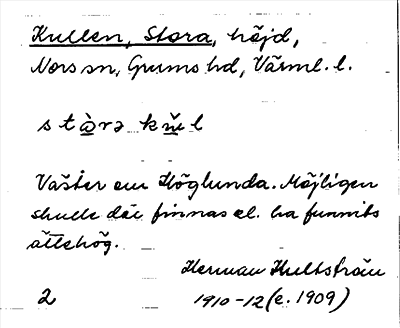 Kullen, Stora, höjd,
Nors sn, Grums hd, Värml. l.
Väster om Höglunda. Möjligen
skulle där finnas el. ha funnits
ättehög.
Herman Hultström
2 1910-12 (e. 1909)